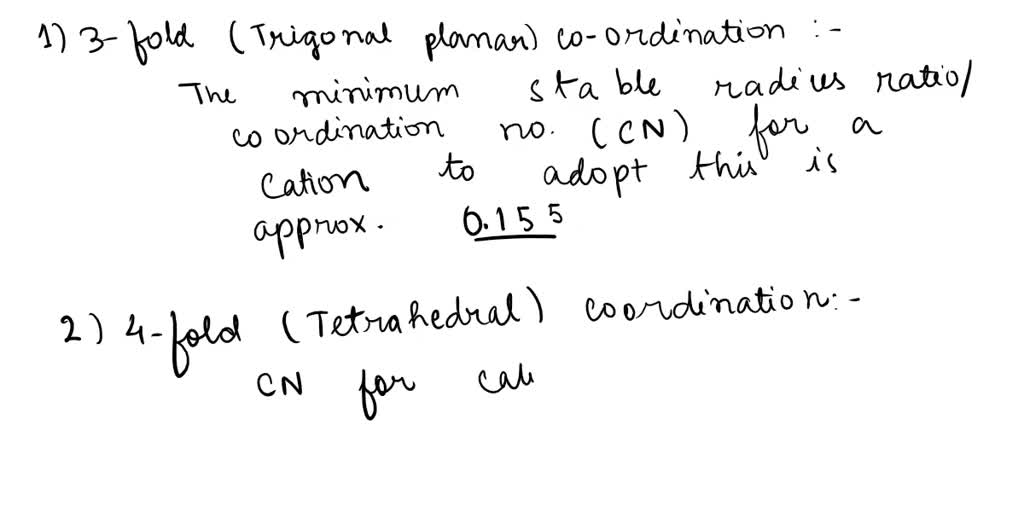 1) 3-fold (Trigonal planar) co-ordination :-
The minimum stable radius ratio/
coordination no. (CN) for a
cation to adopt this is
approx. 0.155
2) 4-fold (Tetrahedral) coordination:-
CN for cati